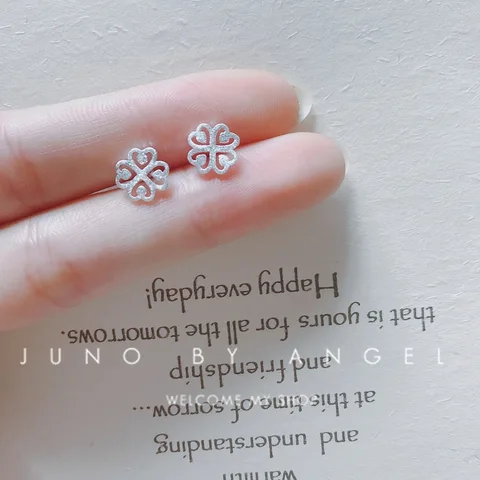 warmth
and understanding
at this time of sorrow...
and friendship
that is yours for all the tomorrows.
Happy everyday!
JUNO BY ANGEL
WELCOME MY SHOP